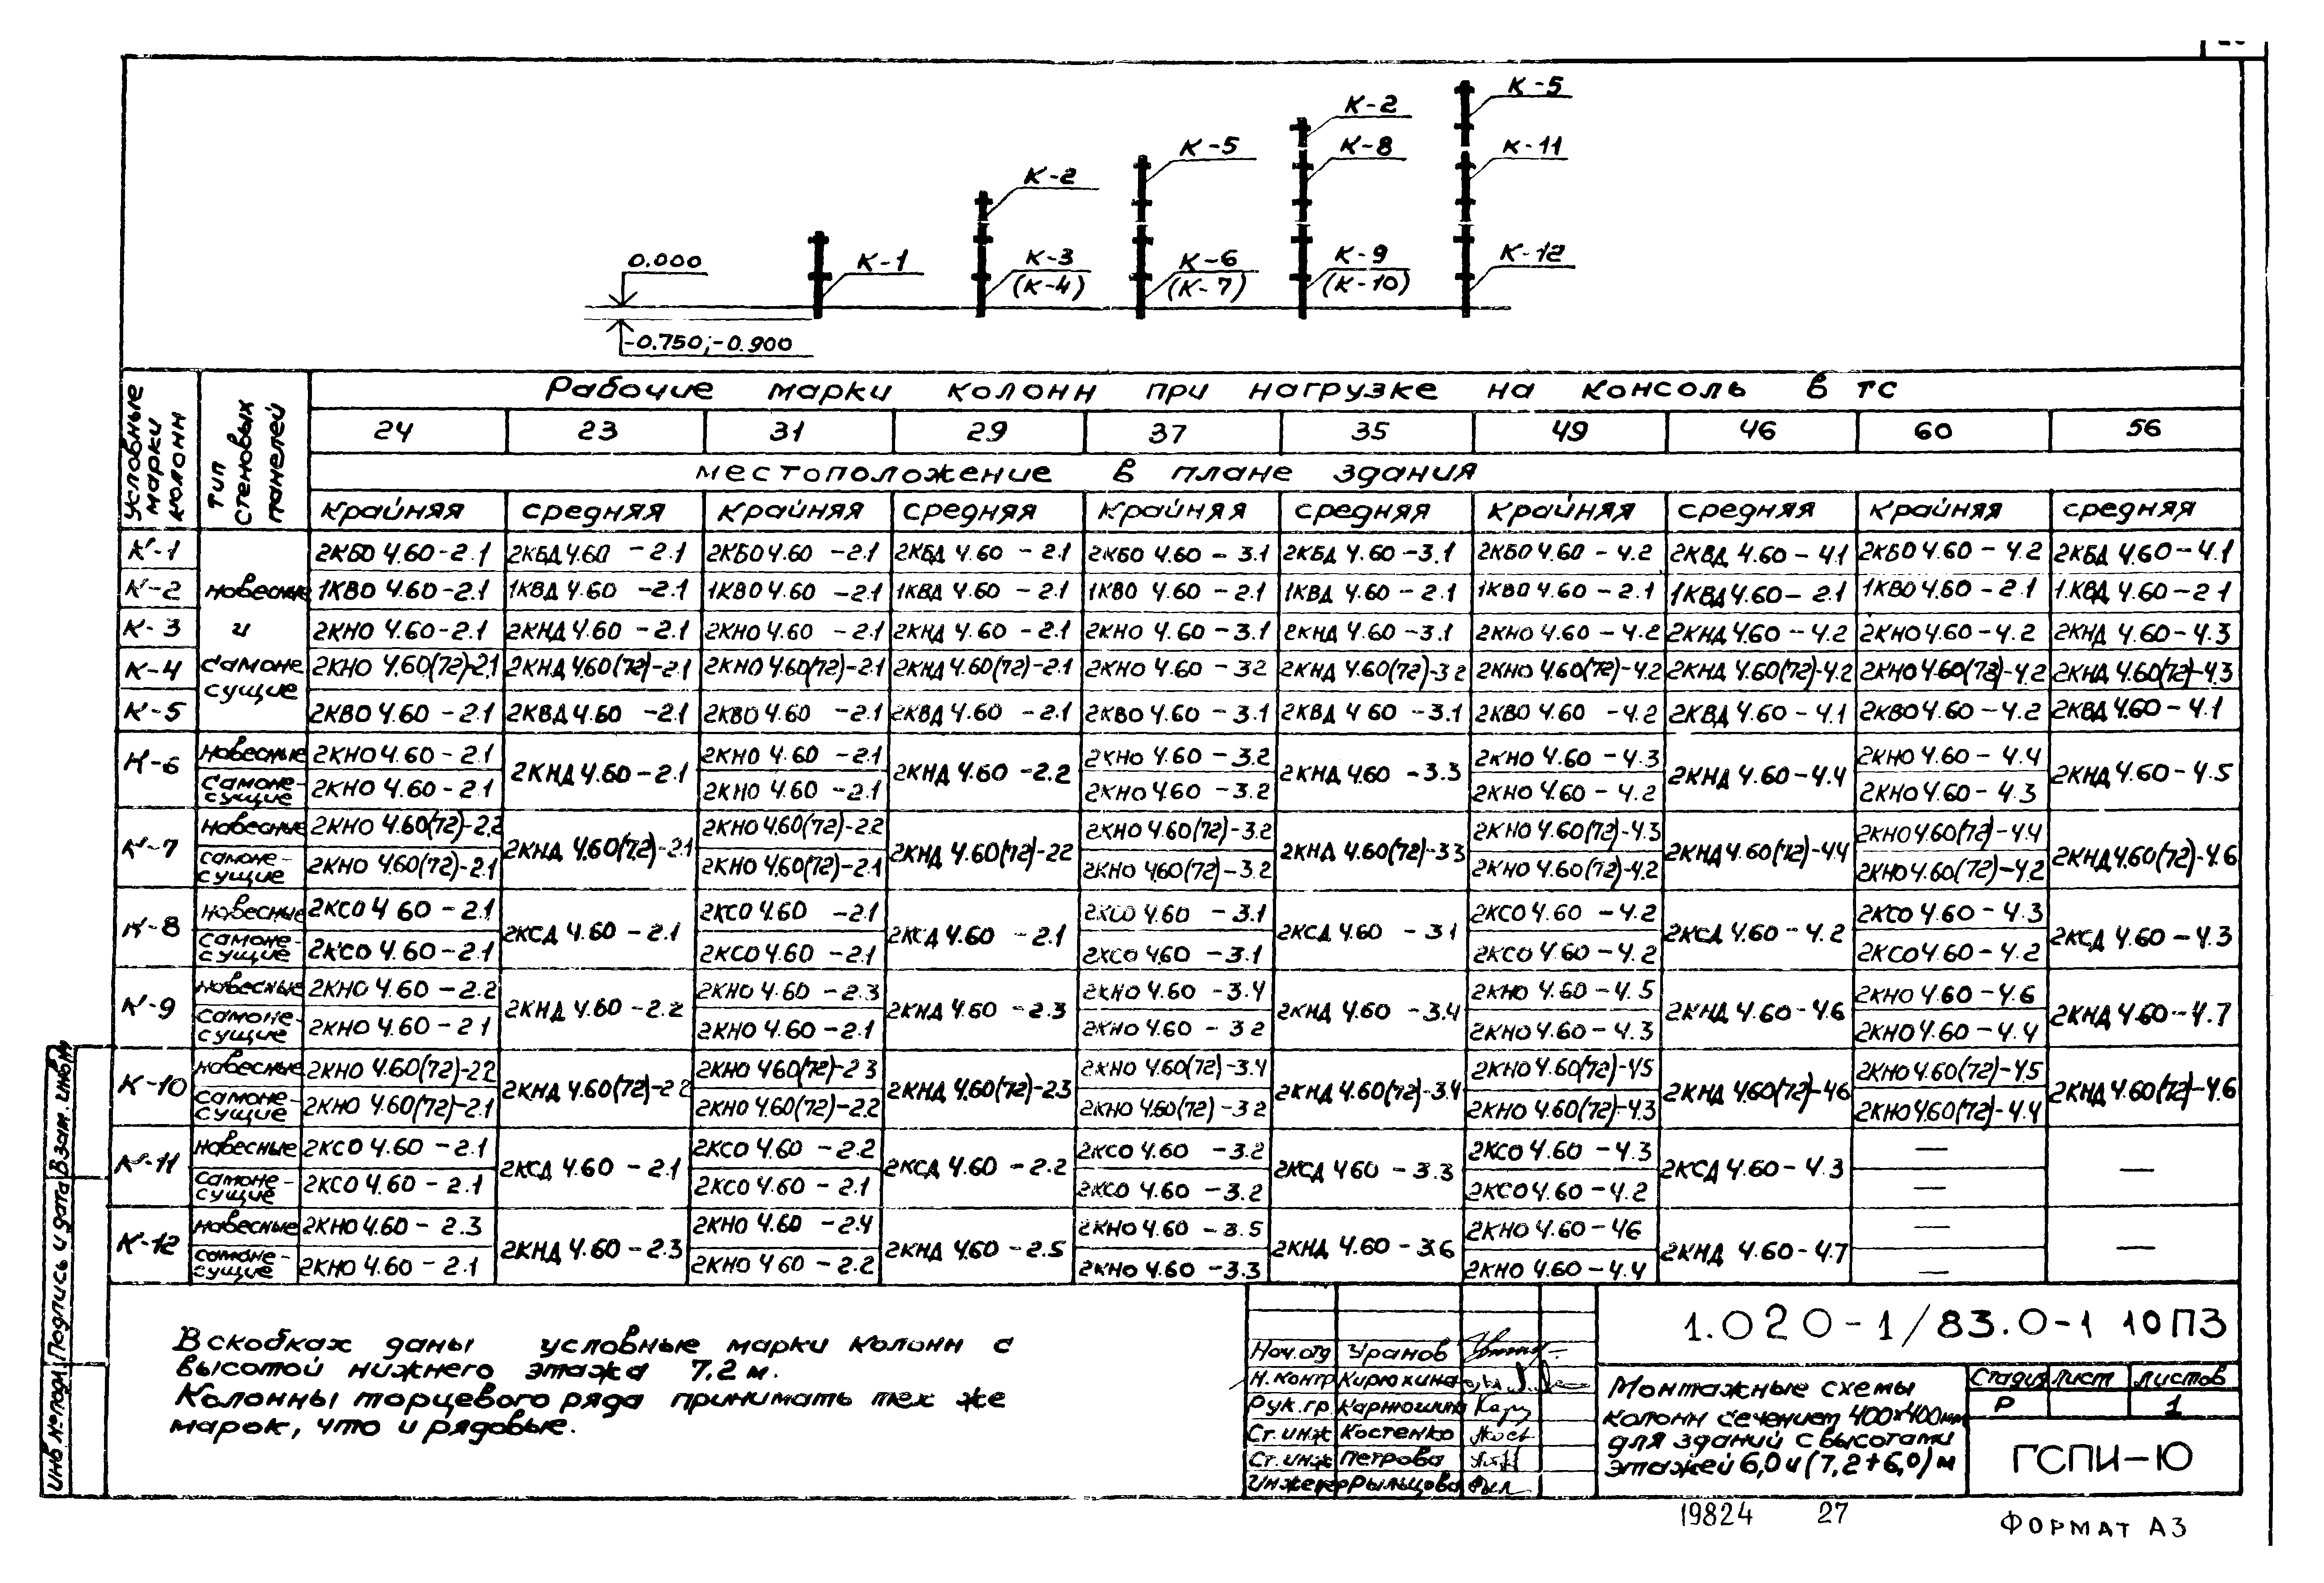 К-5
К-2
К-5 К-8 К-11
К-2
0.000 К-1 К-3 К-6 К-9 К-12
(К-4) (К-7) (К-10)
-0.750; -0.900
Условные марки колонн
Тип стеновых панелей
Рабочие марки колонн при нагрузке на консоль в тс
24 23 31 29 37 35 49 46 60 56
местоположение в плане здания
крайняя средняя крайняя средняя крайняя средняя крайняя средняя крайняя средняя
К-1 2КБО 4.60-2.1 2КБД 4.60 -2.1 2КБО 4.60 -2.1 2КБД 4.60 -2.1 2КБО 4.60 -3.1 2КБД 4.60 -3.1 2КБО 4.60 -4.2 2КБД 4.60 -4.1 2КБО 4.60 -4.2 2КБД 4.60-4.1
К-2 навесные 1КВО 4.60-2.1 1КВД 4.60 -2.1 1КВО 4.60 -2.1 1КВД 4.60 -2.1 1КВО 4.60 -2.1 1КВД 4.60 -2.1 1КВО 4.60 -2.1 1КВД 4.60-2.1 1КВО 4.60 -2.1 1.КВД 4.60-2 1
К-3 и 2КНО 4.60-2.1 2КНД 4.60 -2.1 2КНО 4.60 -2.1 2КНД 4.60 -2.1 2КНО 4.60 -3.1 2КНД 4.60 -3.1 2КНО 4.60 -4.2 2КНД 4.60 -4.2 2КНО 4.60-4.2 2КНД 4.60-4.3
К-4 самоне 2КНО 4.60(72)-2.1 2КНД 4.60(72)-2.1 2КНО 4.60(72)-2.1 2КНД 4.60(72)-2.1 2КНО 4.60 -32 2КНД 4.60(72)-32 2КНО 4.60(72)-4.2 2КНД 4.60(72)-4.2 2КНО 4.60(72)-4.2 2КНД 4.60(72)-4.3
сущие
К-5 2КВО 4.60 -2.1 2КВД 4.60 -2.1 2КВО 4.60 -2.1 2КВД 4.60 -2.1 2КВО 4.60 -3.1 2КВД 4 60 -3.1 2КВО 4.60 -4.2 2КВД 4.60 -4.1 2КВО 4.60 -4.2 2КВД 4.60-4.1
К-6 навесные 2КНО 4.60 -2.1 2КНД 4.60-2.1 2КНО 4.60 -2.1 2КНД 4.60 -2.2 2КНО 4.60 -3.2 2КНД 4.60 -3.3 2КНО 4.60 -4.3 2КНД 4.60-4.4 2КНО 4.60 -4.4 2КНД 4.60-4.5
самоне-
сущие 2КНО 4.60-2.1 2КНО 4.60 -2.1 2КНО 4.60 -3.2 2КНО 4.60 -4.2 2КНО 4.60-4.3
К-7 навесные 2КНО 4.60(72)-2.2 2КНД 4.60(72)-2.1 2КНО 4.60(72)-2.2 2КНД 4.60(72)-22 2КНО 4.60(72)-3.2 2КНД 4.60(72)-33 2КНО 4.60(72)-4.3 2КНД 4.60(72)-4.4 2КНО 4.60(72)-4.4 2КНД 4.60(72)-4.6
самоне-
сущие 2КНО 4.60(72)-2.1 2КНО 4.60(72)-2.1 2КНО 4.60(72)-3.2 2КНО 4.60(72)-4.2 2КНО 4.60(72)-4.2
К-8 навесные 2КСО 4 60 -2.1 2КСД 4.60 -2.1 2КСО 4.60 -2.1 2КСД 4.60 -2.1 2КСО 4.60 -3.1 2КСД 4.60 -3.1 2КСО 4.60 -4.2 2КСД 4.60 -4.2 2КСО 4.60 -4.3 2КСД 4.60 -4.3
самоне-
сущие 2КСО 4.60 -2.1 2КСО 4.60 -2.1 2КСО 4.60 -3.1 2КСО 4.60 -4.2 2КСО 4.60 -4.2
К-9 навесные 2КНО 4.60 -2.2 2КНД 4.60 -2.2 2КНО 4.60 -2.3 2КНД 4.60 -2.3 2КНО 4.60 -3.4 2КНД 4.60 -3.4 2КНО 4.60 -4.5 2КНД 4.60 -4.6 2КНО 4.60 -4.6 2КНД 4.60-4.7
самоне-
сущие 2КНО 4.60 -2 1 2КНО 4.60 -2.1 2КНО 4.60 -3 2 2КНО 4.60 -4.3 2КНО 4.60 -4.4
К-10 навесные 2КНО 4.60(72)-22 2КНД 4.60(72)-2 2 2КНО 460(72)-2 3 2КНД 4.60(72)-23 2КНО 4.60(72)-3.4 2КНД 4.60(72)-3.4 2КНО 4.60(72)-45 2КНД 4.60(72)-46 2КНО 4.60(72)-4.5 2КНД 4.60(72)-4.6
самоне-
сущие 2КНО 4.60(72)-2.1 2КНО 4.60(72)-2.2 2КНО 4.60(72)-3 2 2КНО 4.60(72)-4.3 2КНО 4.60(72)-4.4
К-11 навесные 2КСО 4.60 -2.1 2КСД 4.60 -2.1 2КСО 4.60 -2.2 2КСД 4.60 -2.2 2КСО 4.60 -3.2 2КСД 460 -3.3 2КСО 4.60 -4.3 2КСД 4.60-4.3 — —
самоне-
сущие 2КСО 4.60 -2.1 2КСО 4.60 -2.1 2КСО 4.60 -3.2 2КСО 4.60-4.2 —
К-12 навесные 2КНО 4.60 - 2.3 2КНД 4.60 -2.3 2КНО 4.60 -2.4 2КНД 4.60 -2.5 2КНО 4.60 -3.5 2КНД 4.60 -3.6 2КНО 4.60 -46 2КНД 4.60-4.7 — —
самоне-
сущие 2КНО 4.60 -2.1 2КНО 4 60 -2.2 2КНО 4.60 -3.3 2КНО 4.60 -4.4 —
В скобках даны условные марки колонн с
высотой нижнего этажа 7.2 м.
Колонны торцевого ряда принимать тех же
марок, что и рядовые.
Нач.отд Уранов
Н.контр Кирюхина
Рук.гр Карнюшина
Ст.инж Костенко
Ст.инж Петрова
Инжекер Рыльцова
1.020-1/83.0-1 10ПЗ
Монтажные схемы
колонн сечением 400×400мм
для зданий с высотами
этажей 6,0 и (7,2+6,0)м
Стадия Лист Листов
Р 1
ГСПИ-Ю
Инв № подл Подпись и дата Взам. инв №
19824 27
Формат А3